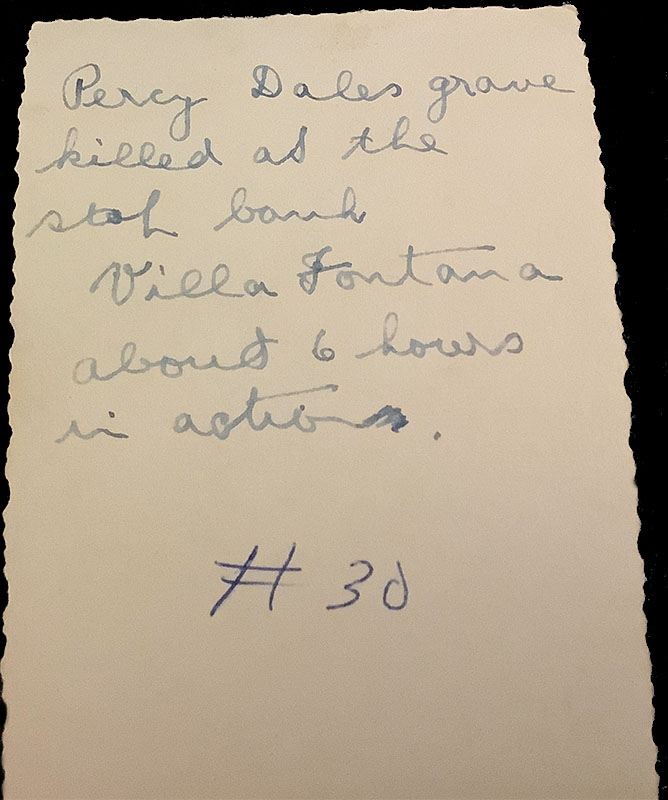 Percy Dales grave
killed at the
stop bank
Villa Fontana
about 6 hours
in action.
# 30